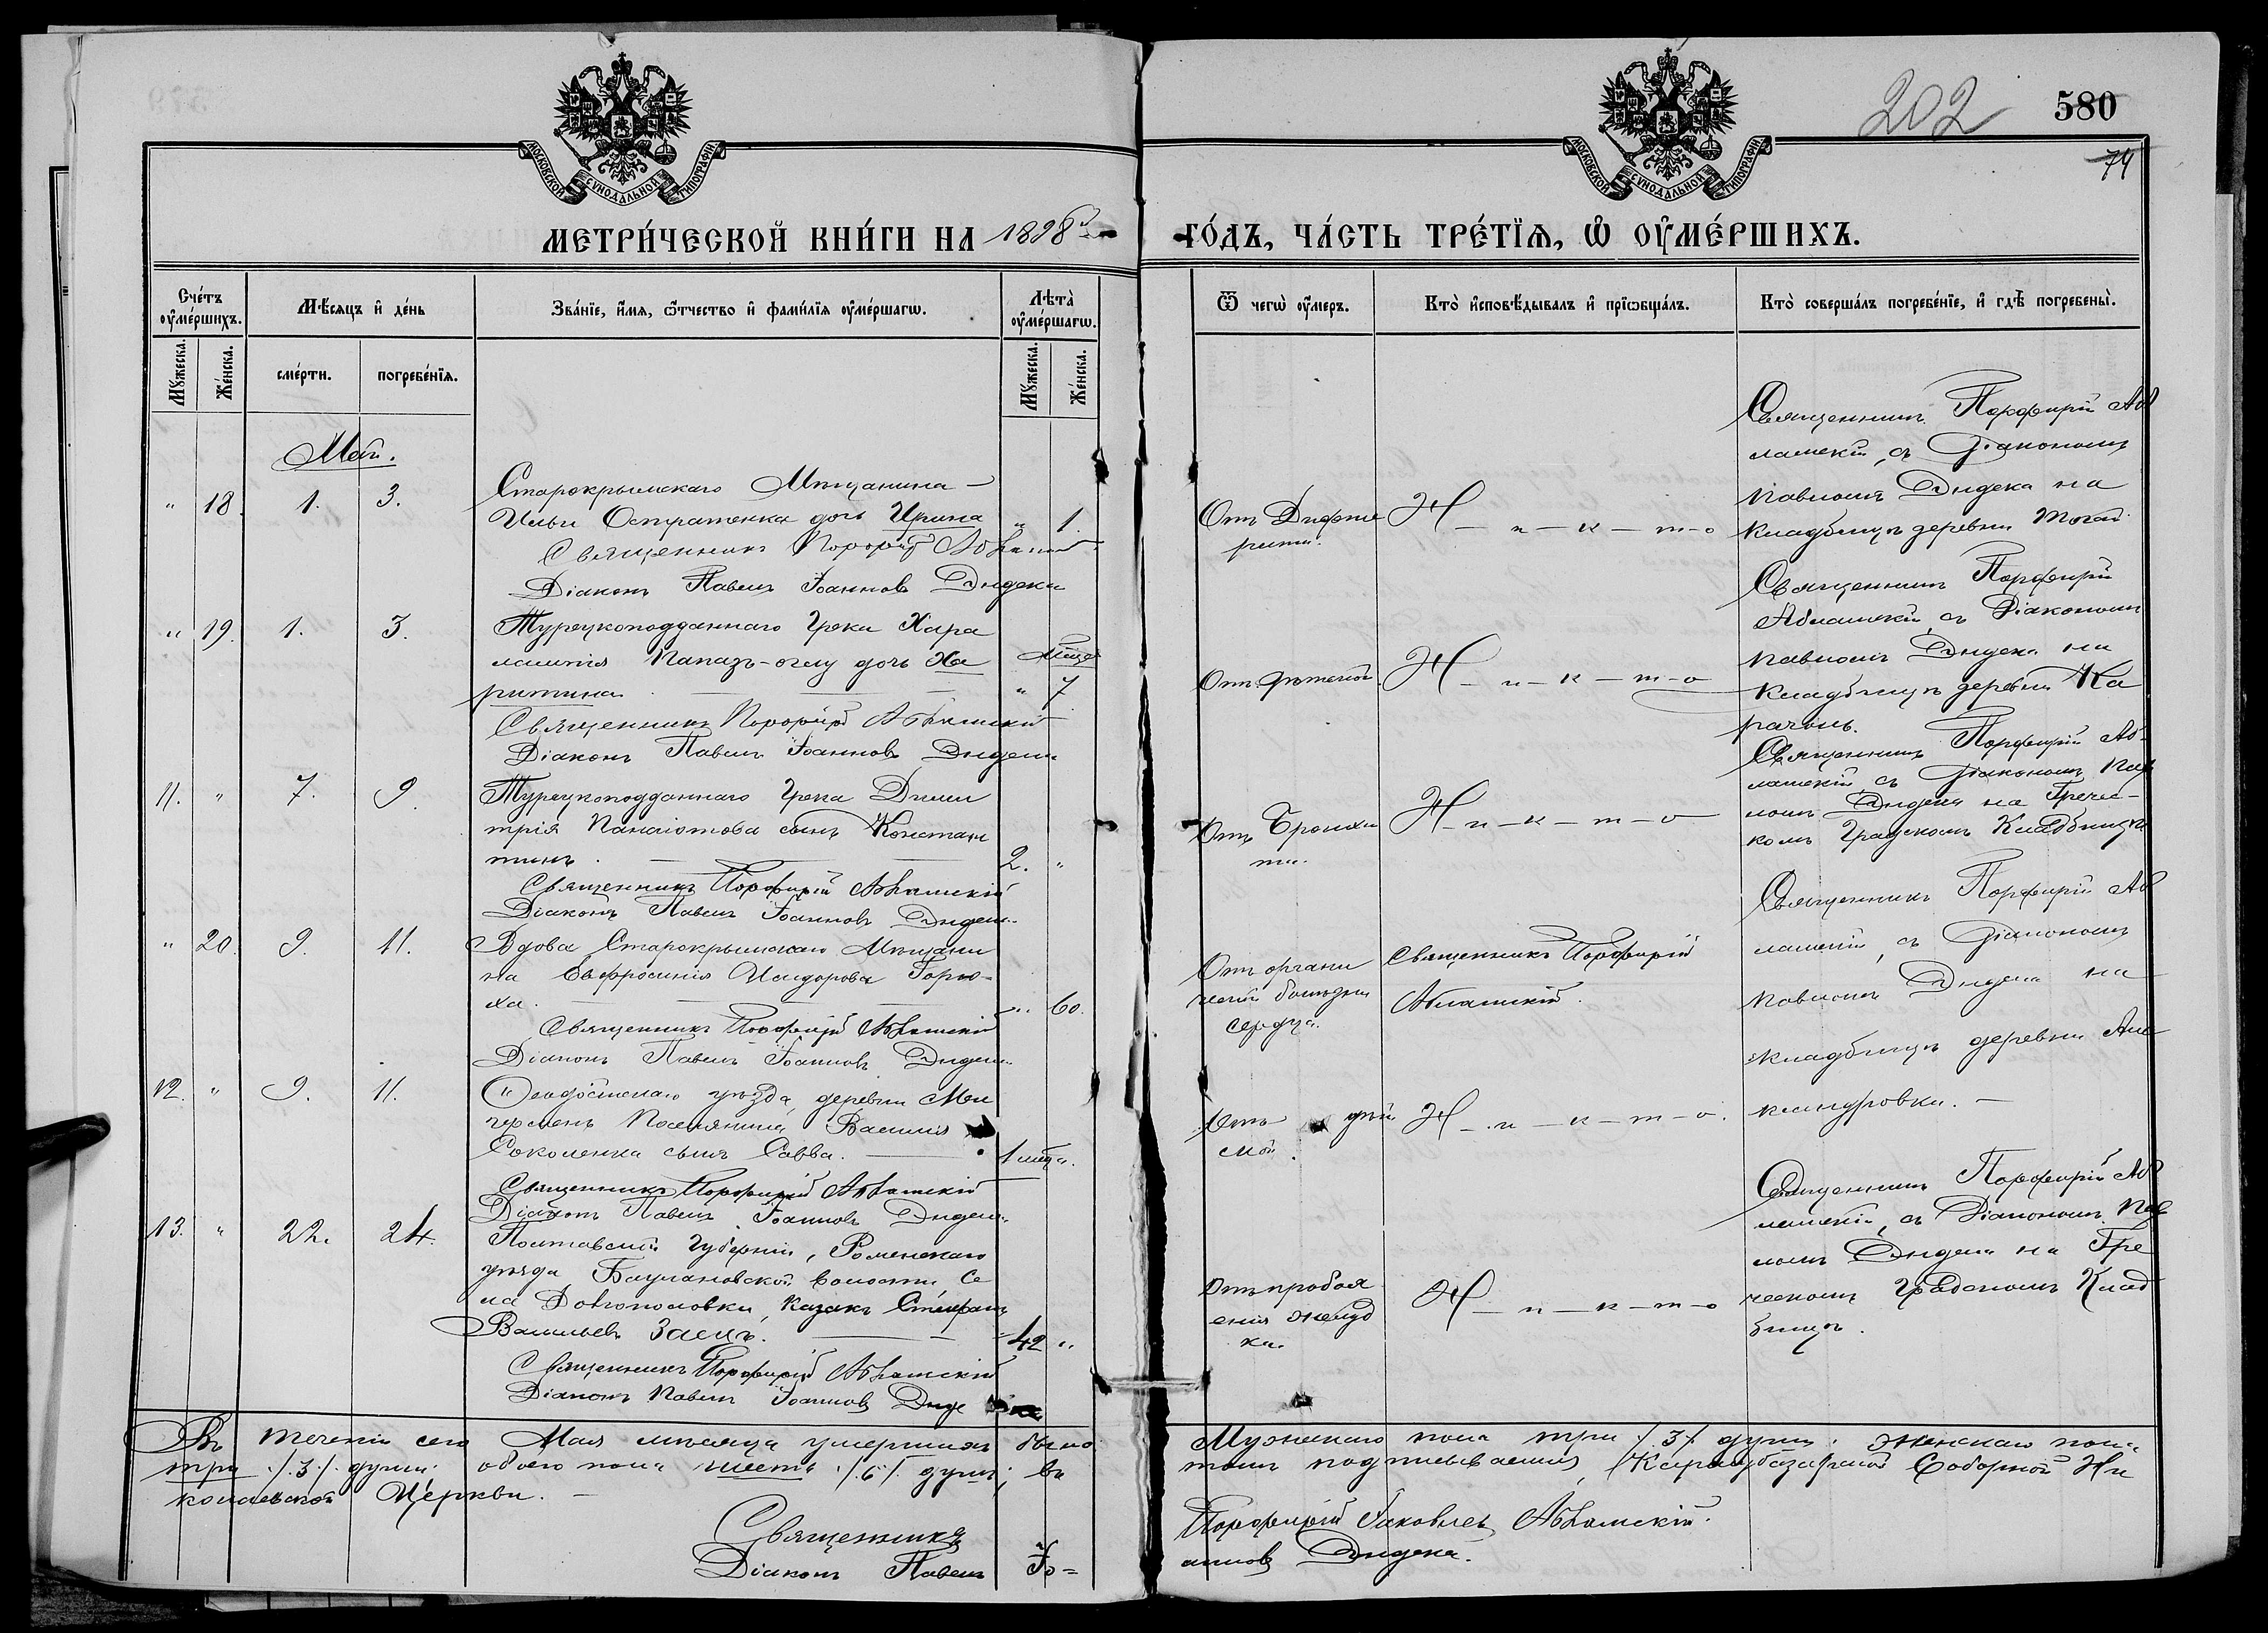 МОСКОВСКОЙ СУНОДАЛЬНОЙ ТИПОГРАФІИ
МОСКОВСКОЙ СУНОДАЛЬНОЙ ТИПОГРАФІИ
202
580
74
МЕТРИ́ЧЕСКОЙ КНИ́ГИ НА 1898й
ГО́ДЪ, ЧА́СТЬ ТРЕ́ТЇѦ, Ѡ ОУМЕ́РШИХЪ.
Сче́тъ оуме́ршихъ.
Мꙋжеска.
Же́нска.
Мѣ́сѧцъ и де́нь
сме́рти.
погребе́нїѧ.
Зва́нїе, и́мѧ, ѻ҆́тчество и фами́лїѧ оуме́ршагѡ.
Лѣта̀ оуме́ршагѡ.
Мꙋжеска.
Же́нска.
Ѿ чегѡ̀ оу́меръ.
Кто̀ исповѣ́дывалъ и прїѡбща́лъ.
Кто̀ соверша́лъ погребе́нїе, и гдѣ̀ погребены̀.
Май.
" 18. 1. 3.
Старокрымскаго Мѣщанина
Ильи Остратенка дочь Ирина " 1.
Священникъ Порфирій Абламскій
Діаконъ Павелъ Іоанновъ Дидека
Отъ Дифте
рита.
Н-и-к-т-о
Священникъ Порфирій Аб
ламскій, съ Діакономъ
Павломъ Дидека на
кладбищѣ деревни
" 19. 1. 3.
Турецкоподданнаго Грека Хара
лампія Папазъ-оглу дочь Ха
ритина " 7
Священникъ Порфирій Абламскій
Діаконъ Павелъ Іоанновъ Дидека
Отъ
Н-и-к-т-о
Священникъ Порфирій
Абламскій съ Діакономъ
Павломъ Дидека на
кладбищѣ деревни Ка
рачоль.
11. " 7. 9.
Турецкоподданнаго Грека Дими
трія Панаіотова сынъ Констан
тинъ. 2. "
Священникъ Порфирій Абламскій
Діаконъ Павелъ Іоанновъ Дидека
Отъ Бронхи
та.
Н-и-к-т-о
Священникъ Порфирій Аб-
ламскій съ Діакономъ Пав
ломъ Дидека на Гречес-
комъ Градскомъ Кладбищѣ
" 20. 9. 11.
Вдова Старокрымскаго Мѣщани
на Евфросинія Исидорова Горю-
ха. " 60.
Священникъ Порфирій Абламскій
Діаконъ Павелъ Іоанновъ Дидека
Отъ органи
ческой болѣзни
сердца.
Священникъ Порфирій
Абламскій.
Священникъ Порфирій Аб
ламскій, съ Діакономъ
Павломъ Дидека на
кладбищѣ деревни Але
ксандровки.
12. " 9. 11.
Ѳеодосійскаго уѣзда, деревни Мен
герменъ Поселянина Василія
Соколенка сынъ Савва. 1 мѣся.
Священникъ Порфирій Абламскій
Діаконъ Павелъ Іоанновъ Дидека
Отъ
Н-и-к-т-о.
13. " 22. 24.
Полтавской Губерніи, Роменскаго
уѣзда, волости Се
ла Довгополовки, Казакъ Стефанъ
Васильевъ Заецъ. 42 "
Священникъ Порфирій Абламскій
Діаконъ Павелъ Іоанновъ Диде ка
Отъ прободе
енія желуд
ка.
Н-и-к-т-о
Священникъ Порфирій Аб
ламскій, съ Діакономъ Пав
ломъ Дидека на Гре
ческомъ Градскомъ Клад
бищѣ.
Въ теченіи сего Мая мѣсяца умершихъ было Мужескаго пола три /.3./ души. женскаго пола
три /.3./ души. обоего пола шесть /.6./ душъ; въ томъ подписываемся, Карасубазарской Соборной Ни
колаевской Церкви.
Священникъ Порфирій Іаковлевъ Абламскій.
Діаконъ Павелъ Іо=анновъ Дидека.